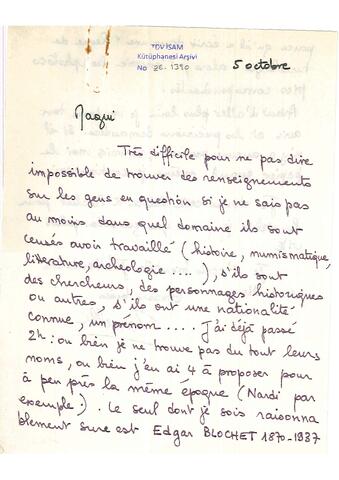 TDV İSAM
Kütüphanesi Arşivi
No 2E.1390
5 octobre
Maqui
Très difficile pour ne pas dire
impossible de trouver des renseignements
sur les gens en question si je ne sais pas
au moins dans quel domaine ils sont
censés avoir travaillé (histoire, numismatique,
litterature, archeologie ....), s'ils sont
des chercheurs, des personnages historiques
ou autres, s'ils ont une nationalité
connue, un prénom .... J'ai déjà passé
2h: ou bien je ne trouve pas du tout leurs
noms, ou bien j'en ai 4 à proposer pour
à peu près la même époque (Nardi par
exemple). Le seul dont je sois raisonna
blement sure est Edgar BLOCHET 1870-1937